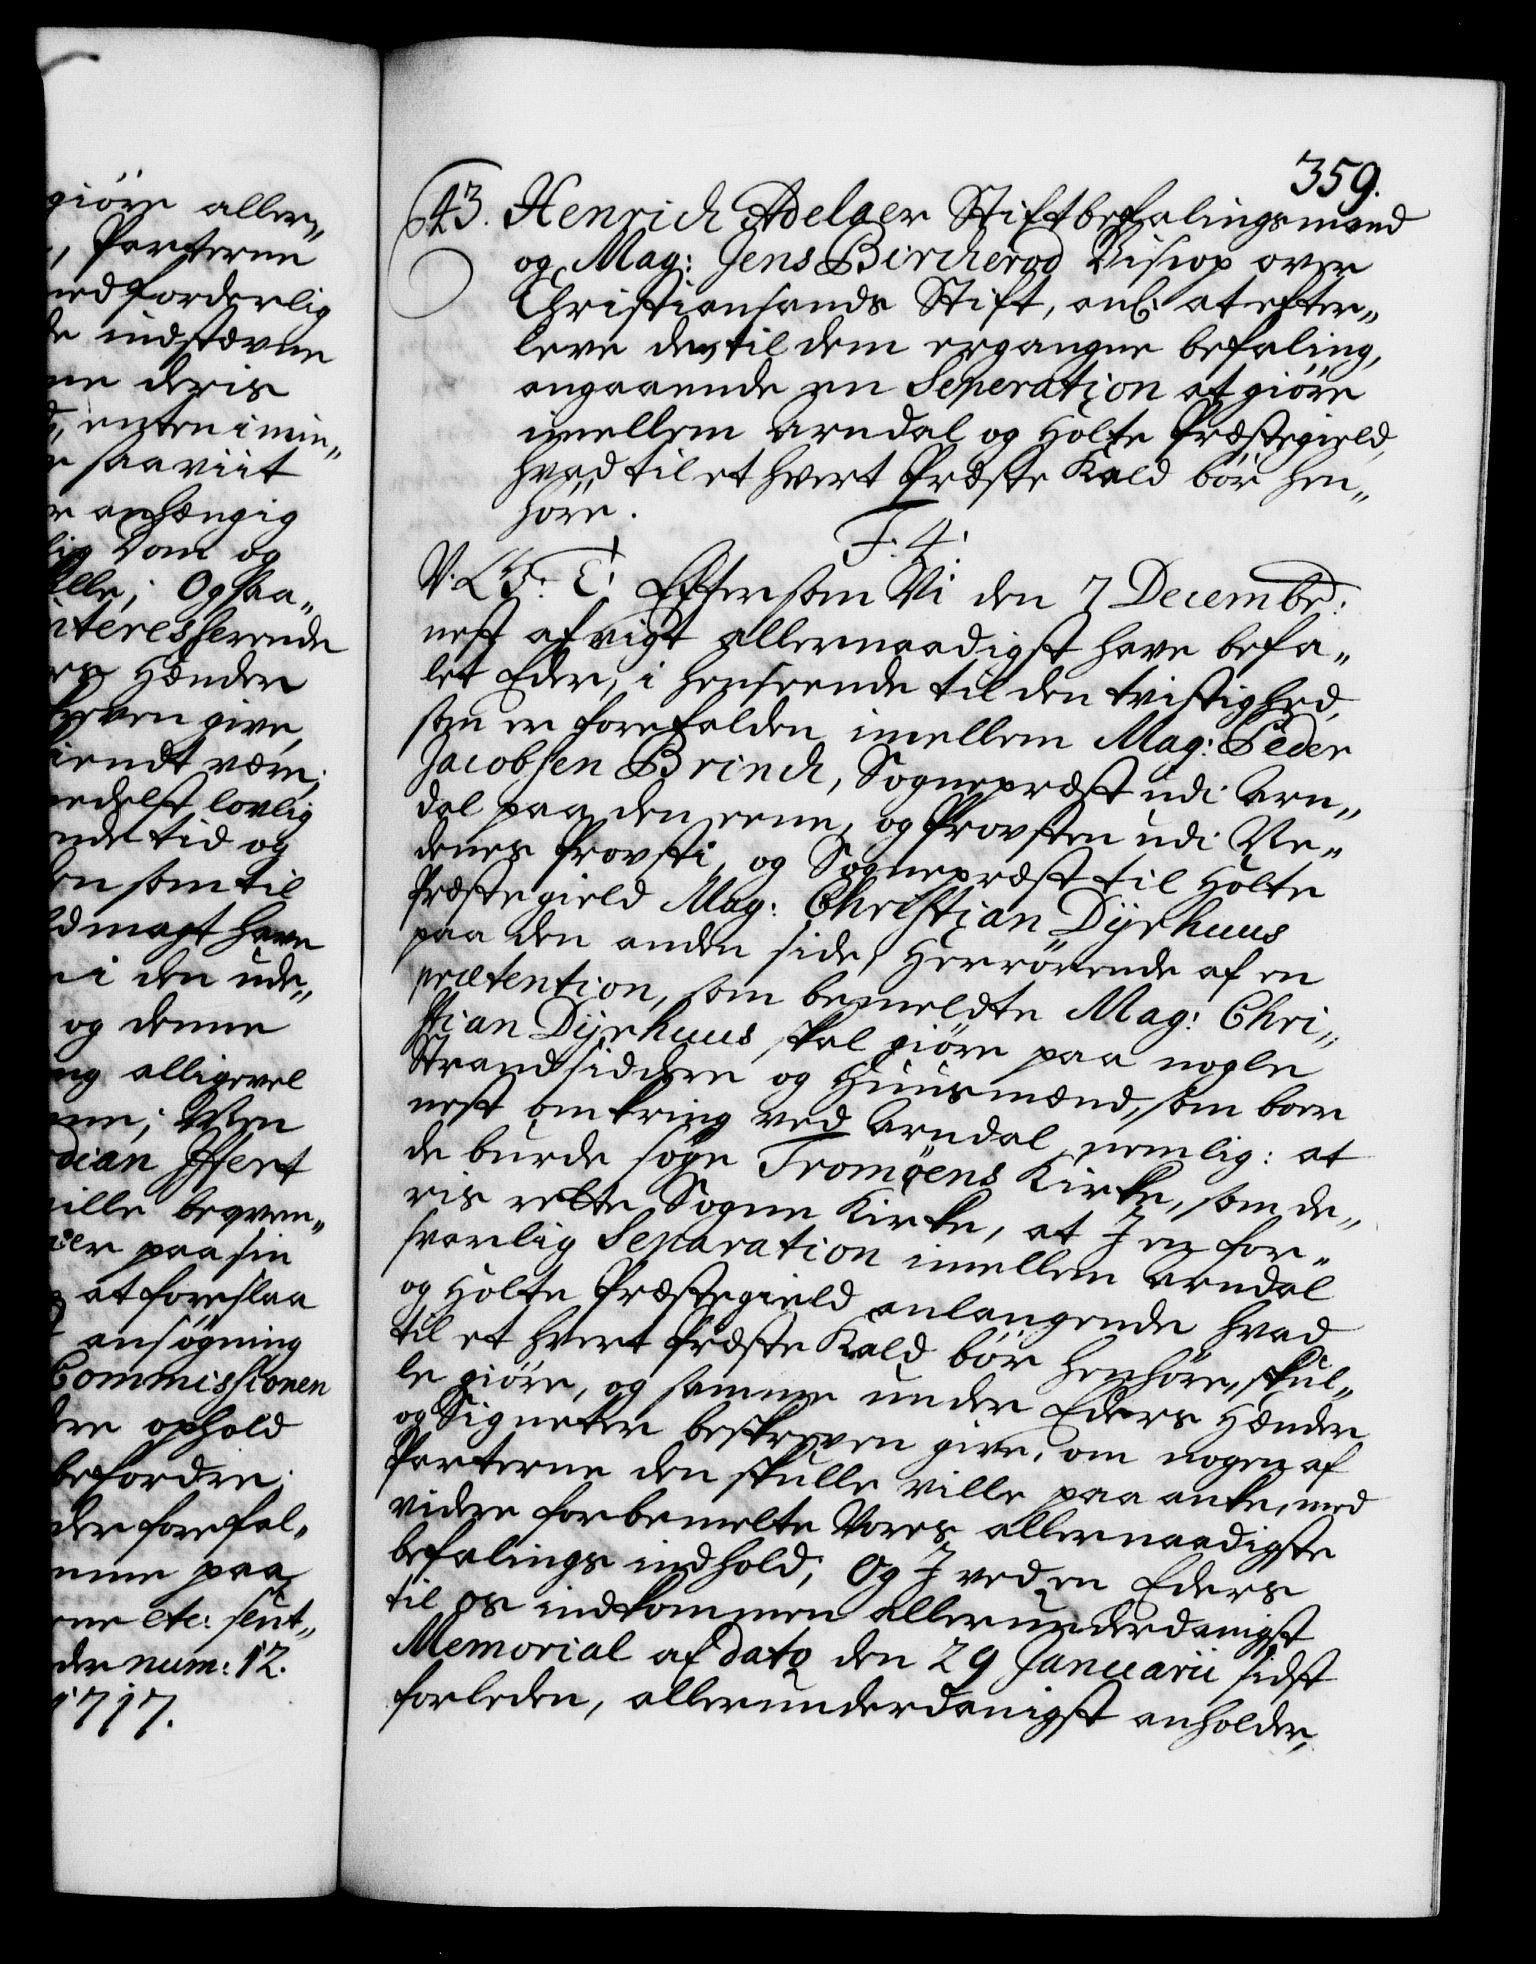 giöre aller„
, Parterne
med forderlig
de indstævne
ne deris
d, enten i min„
e saa viit
er anhængig
lig Dom og
ille; Og saa„
interesserende
ers Hænder
even give,
kiendt være;
edelst lovlig
nde tid og
en som til
ld magt have
e i den ude„
og denne
ng alligevel
ne; Men
dian Iffert
ville beqvem„
er paa sin
at foreslaa
ansøgning
Commissionen
dre ophold
befordre;
der forefal„
nne paa
ne etc: slut„
der num: 12.
1717.
359.
43. Henrich Adelaer Stiftbefalingsmand
og Mag: Jens Bircherod Biscop over
Christiansands Stift, anl: at efter„
leve den til dem ergangne befaling,
angaaende en Seperation at giöre
imellem Arndal og Holte Præstegield,
hvad til et hvert Præste Kald bör hen„
höre.
F. 4.
V. G. T. Eftersom Vi den 7 Decembr:
nest afvigt allernaadigst have befa„
let Eder, i henseende til den tvistighed,
som er forefalden imellem Mag: Peder
Jacobsen Brinch, Sognepræst udi Arn„
dal paa den eene, og Provsten udi Ne„
denes Provsti, og Sognepræst til Holte
Præstegield Mag: Christian Dyrhuus
paa den anden side, Herrörende af en
prætention, som bemeldte Mag: Chri„
stian Dyrhuus skal giöre paa nogle
Strandsiddere og Huusmænd, som boer
nest omkring ved Arndal, nemlig: at
de burde söge Tromöens Kirke, som de„
ris rette Sogne Kirke, at I en for„
svarlig Separation imellem Arndal
og Holte Præstegield anlangende hvad
til et hvert Præste Kald bör henhöre, skul„
le giöre, og samme under Eders Hænder
og Signeter beskreven give, om nogen af
Parterne den skulle ville paa anke, med
videre forbemelte Vores allernaadigste
befalings indhold; Og I ved en Eders
til os indkommen allerunderdanigst
Memorial af dato den 29 Januarii sidst
forleden, allerunderdanigst anholder,